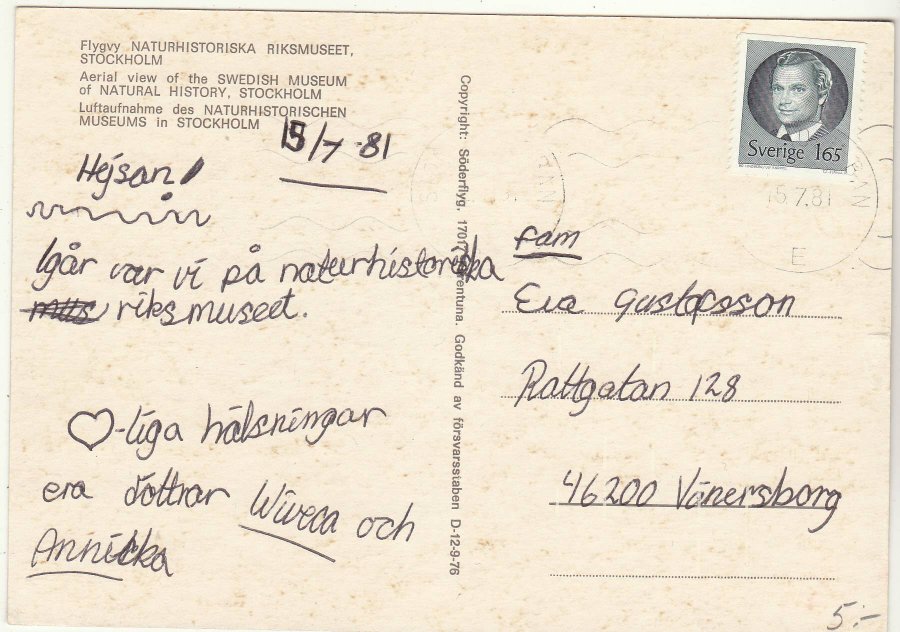 Flygvy NATURHISTORISKA RIKSMUSEET,
STOCKHOLM
Aerial view of the SWEDISH MUSEUM
of NATURAL HISTORY, STOCKHOLM
Luftaufnahme des NATURHISTORISCHEN
MUSEUMS in STOCKHOLM
15/7-81
Hejsan!
Igår var vi på naturhistoriska
mus riksmuseet.
♡-liga hälsningar
era döttrar Wiveca och
Annicka
Copyright: Söderflyg, 1701 entuna. Godkänd av försvarsstaben D-12-9-76
Sverige 165
15.7.81
E
fam
Eve Gustafsson
Rattgatan 128
46200 Vänersborg
5:-